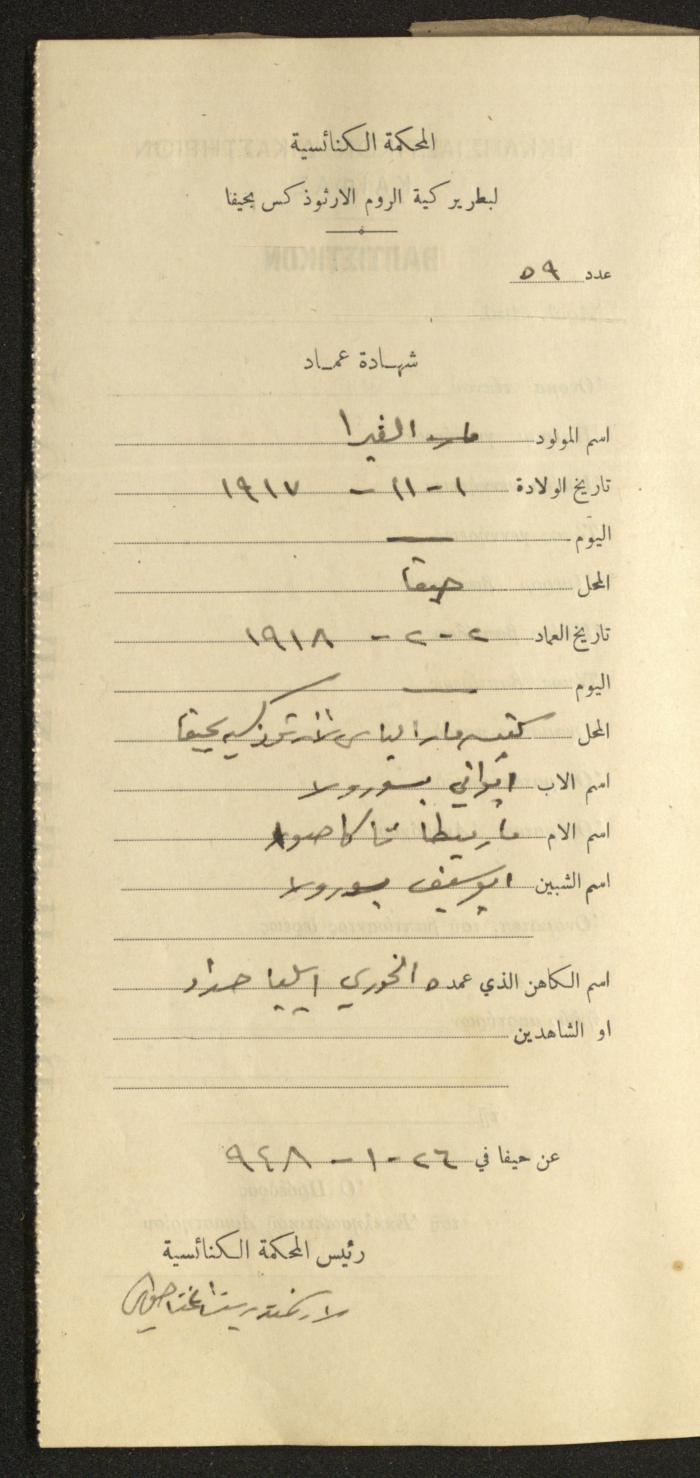 المحكمة الكنائسية
لبطريركية الروم الارثوذكس بحيفا
عدد ٥٩
شهادة عماد
اسم المولود الفيرا
تاريخ الولادة ١ - ١١ - ١٩١٧
اليوم —
المحل حيفا
تاريخ العماد ٢ - ٢ - ١٩١٨
اليوم —
المحل كنيسة مار الياس للارثوذكس بحيفا
اسم الاب
اسم الام
اسم الشبين
اسم الكاهن الذي عمده الخوري ايليا حداد
او الشاهدين
عن حيفا في ٢٦ - ١ - ٩٤٨
رئيس المحكمة الكنائسية